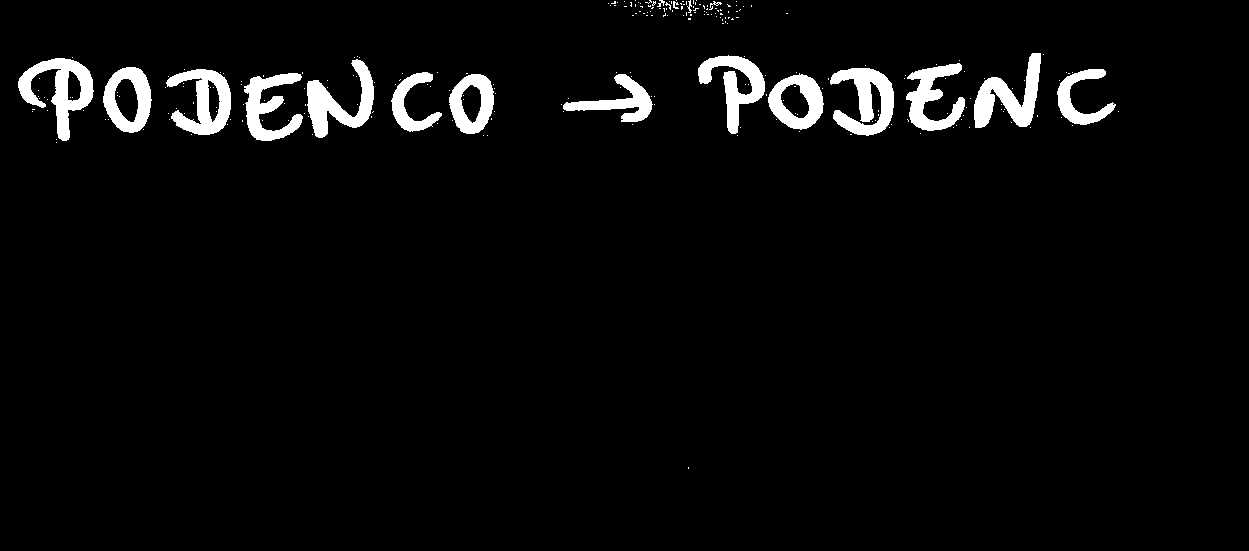 PODENCO → PODENC